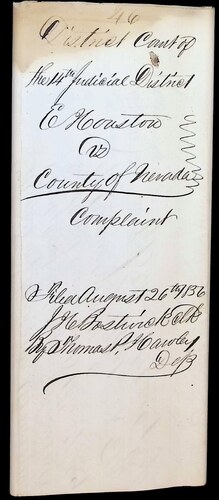 46
District Court of
the 14th Judicial District
E Houston
vs
County of Nevada
Complaint
Filed August 26th
J H Bostwick Clk
By Thomas P. Hawley
Dep